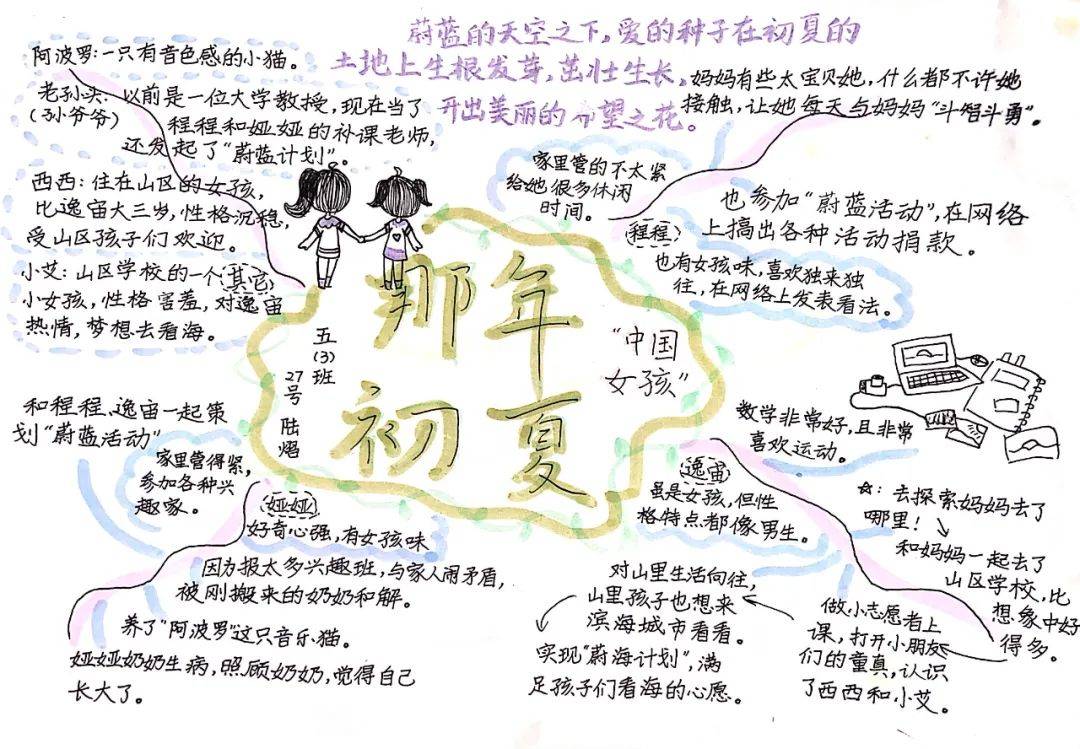 蔚蓝的天空之下,爱的种子在初夏的
土地上生根发芽,茁壮生长,
开出美丽的希望之花。
那年
初夏
"中国
女孩"
五(3)班
27号
陆熠
阿波罗:一只有音色感的小猫。
老孙头:以前是一位大学教授,现在当了
(孙爷爷)
程程和娅娅的补课老师,
还发起了"蔚蓝计划"。
西西:住在山区的女孩,
比逸宙大三岁,性格沉稳,
受山区孩子们欢迎。
小艾:山区学校的一个
小女孩,性格害羞,对逸宙
热情,梦想去看海。
其它
妈妈有些太宝贝她,什么都不许她
接触,让她每天与妈妈"斗智斗勇"。
家里管的不太紧
给她很多休闲
时间。
(程程)
也参加"蔚蓝活动",在网络
上搞出各种活动捐款。
也有女孩味,喜欢独来独
往,在网络上发表看法。
和程程、逸宙一起策
划"蔚蓝活动"
家里管得紧,
参加各种兴
趣家。
娅娅
好奇心强,有女孩味
因为报太多兴趣班,与家人闹矛盾,
被刚搬来的奶奶和解。
养了"阿波罗"这只音乐小猫。
娅娅奶奶生病,照顾奶奶,觉得自己
长大了。
逸宙
虽是女孩,但性
格特点都像男生。
数学非常好,且非常
喜欢运动。
☆:去探索妈妈去了
哪里!
和妈妈一起去了
山区学校,比
想象中好
得多。
做小志愿者上
课,打开小朋友
们的童真,认识
了西西和小艾。
对山里生活向往,
山里孩子也想来
滨海城市看看。
实现"蔚海计划",满
足孩子们看海的心愿。